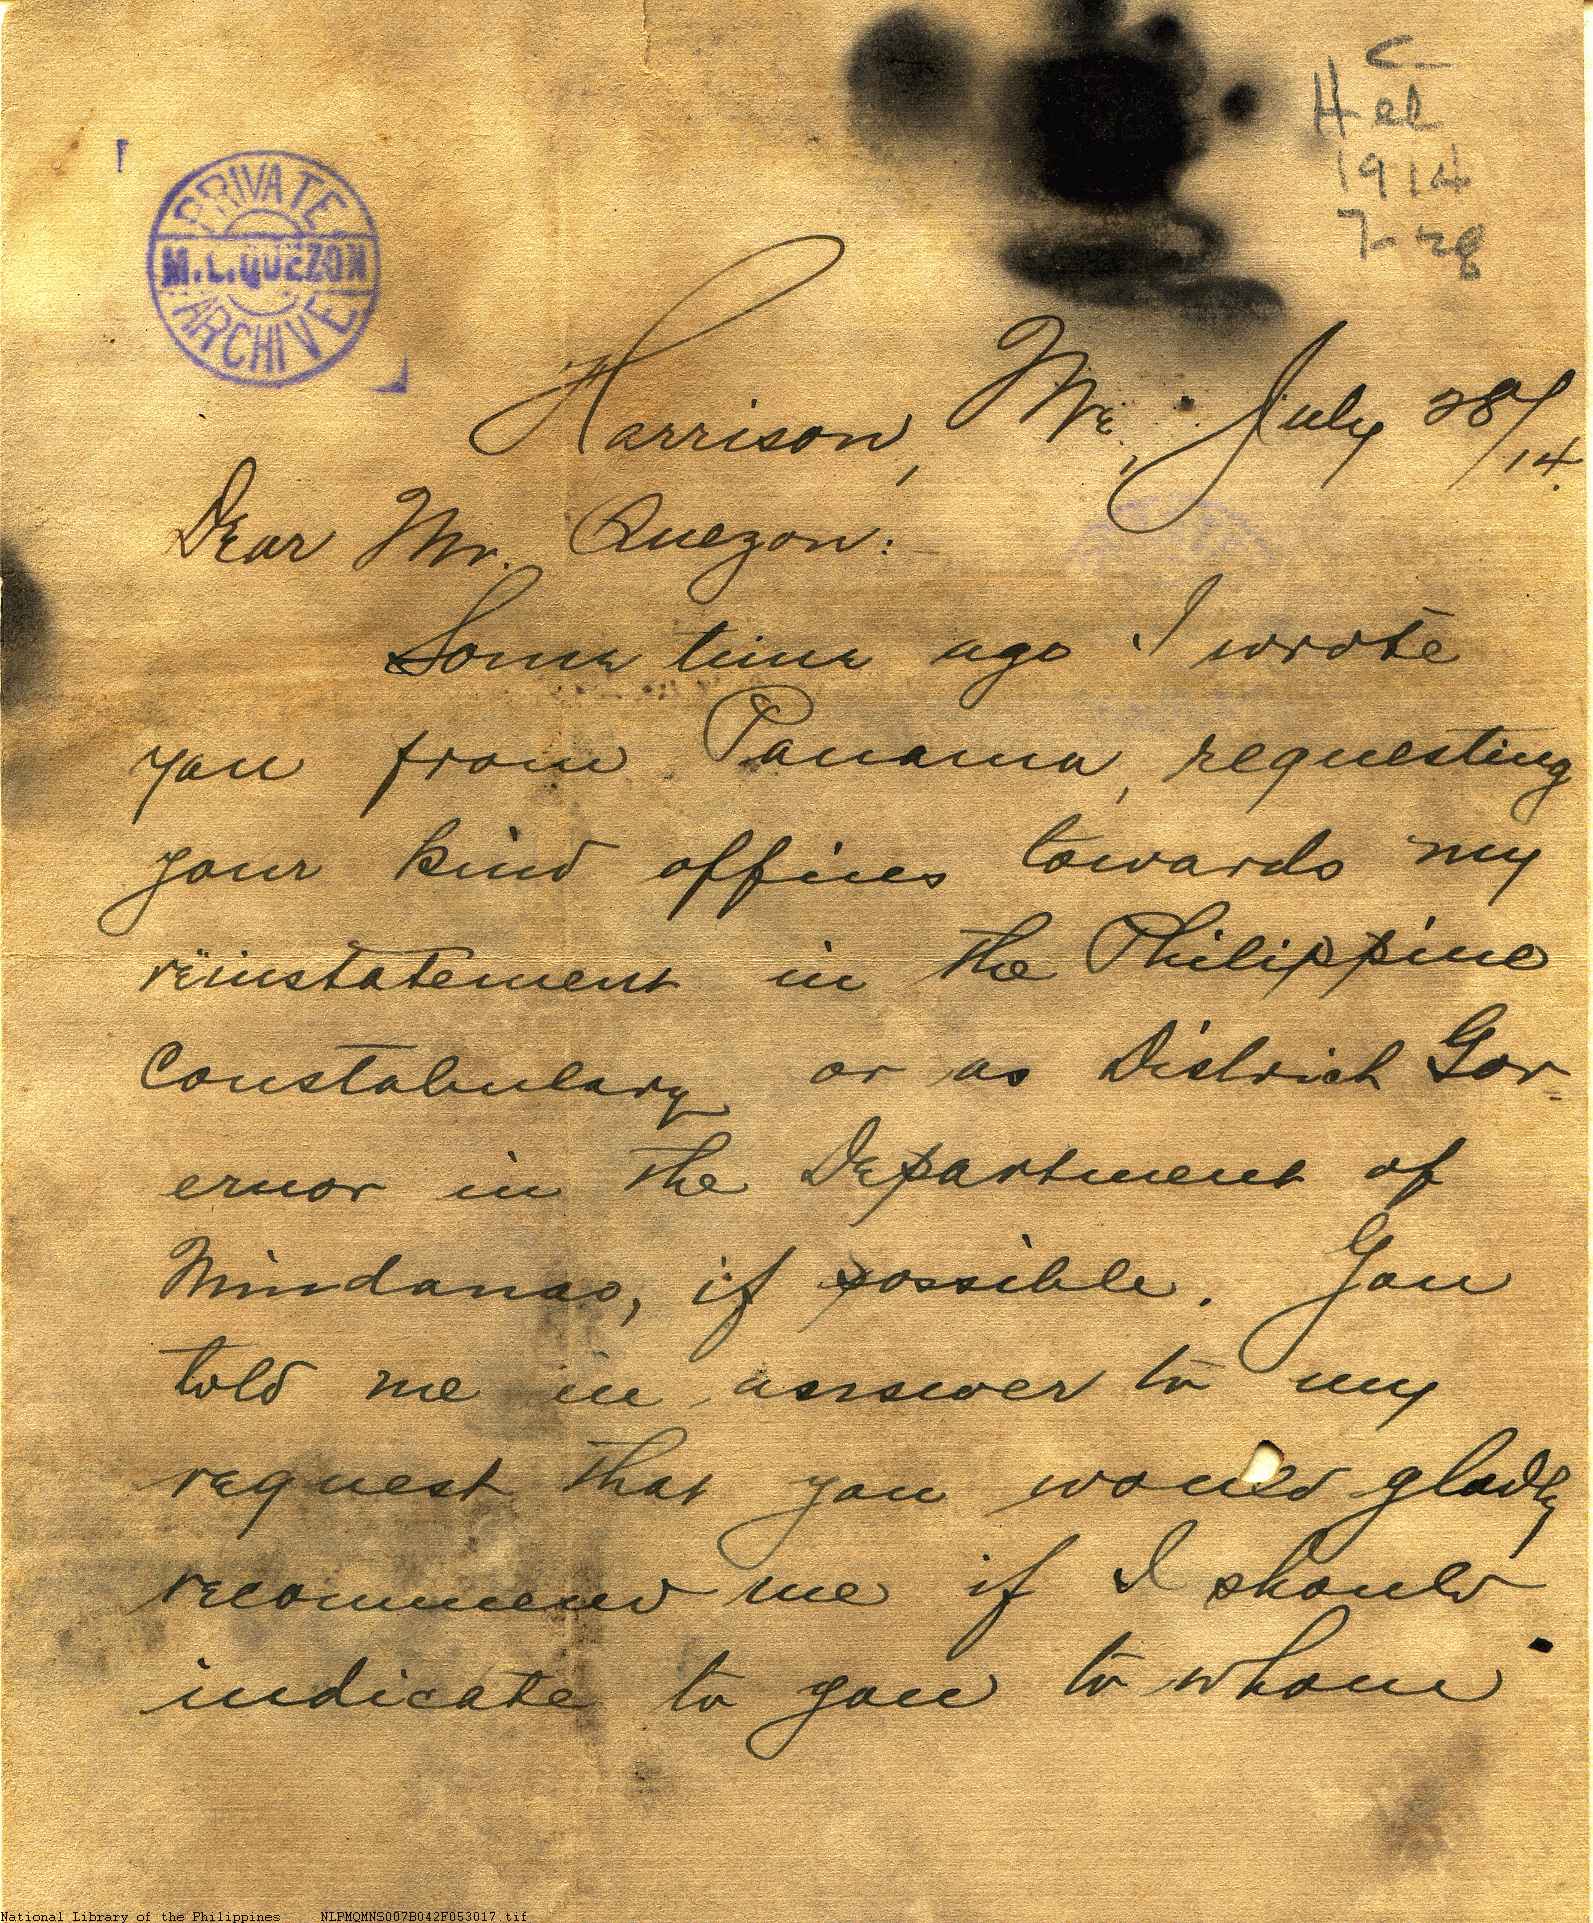 C
Hel
1914
7-28
PRIVATE
M.L.QUEZON
ARCHIVE
Harrison, Me., July 28/14.
Dear Mr. Quezon:
Some time ago I wrote
you from Panama, requesting
your kind offices towards my
reïnstatement in the Philippine
Constabulary or as District Gov-
ernor in the Department of
Mindanao, if possible. You
told me in answer to my
request that you would gladly
recommend me if I should
indicate to you to whom
National Library of the Philippines NLPMQMNS007B042F053017.tif